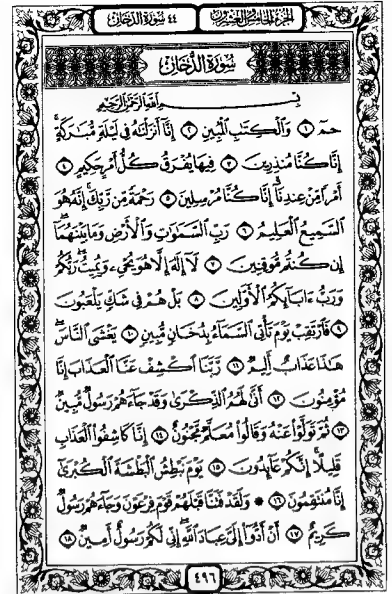 الجزء الخامس والعشرون ٤٤ سورة الدخان
سُورَةُ الدُّخَانِ
بِسْمِ اللَّهِ الرَّحْمَٰنِ الرَّحِيمِ
حمٓ ١ وَالْكِتَابِ الْمُبِينِ ٢ إِنَّا أَنزَلْنَاهُ فِي لَيْلَةٍ مُّبَارَكَةٍ
إِنَّا كُنَّا مُنذِرِينَ ٣ فِيهَا يُفْرَقُ كُلُّ أَمْرٍ حَكِيمٍ ٤
أَمْرًا مِّنْ عِندِنَا إِنَّا كُنَّا مُرْسِلِينَ ٥ رَحْمَةً مِّن رَّبِّكَ إِنَّهُ هُوَ
السَّمِيعُ الْعَلِيمُ ٦ رَبِّ السَّمَاوَاتِ وَالْأَرْضِ وَمَا بَيْنَهُمَا
إِن كُنتُم مُّوقِنِينَ ٧ لَا إِلَٰهَ إِلَّا هُوَ يُحْيِي وَيُمِيتُ رَبُّكُمْ
وَرَبُّ ءَابَائِكُمُ الْأَوَّلِينَ ٨ بَلْ هُمْ فِي شَكٍّ يَلْعَبُونَ
٩ فَارْتَقِبْ يَوْمَ تَأْتِي السَّمَاءُ بِدُخَانٍ مُّبِينٍ ١٠ يَغْشَى النَّاسَ
هَٰذَا عَذَابٌ أَلِيمٌ ١١ رَّبَّنَا اكْشِفْ عَنَّا الْعَذَابَ إِنَّا
مُؤْمِنُونَ ١٢ أَنَّىٰ لَهُمُ الذِّكْرَىٰ وَقَدْ جَاءَهُمْ رَسُولٌ مُّبِينٌ
١٣ ثُمَّ تَوَلَّوْا عَنْهُ وَقَالُوا مُعَلَّمٌ مَّجْنُونٌ ١٤ إِنَّا كَاشِفُوا الْعَذَابِ
قَلِيلًا إِنَّكُمْ عَائِدُونَ ١٥ يَوْمَ نَبْطِشُ الْبَطْشَةَ الْكُبْرَىٰ
إِنَّا مُنتَقِمُونَ ١٦ * وَلَقَدْ فَتَنَّا قَبْلَهُمْ قَوْمَ فِرْعَوْنَ وَجَاءَهُمْ رَسُولٌ
كَرِيمٌ ١٧ أَنْ أَدُّوا إِلَيَّ عِبَادَ اللَّهِ إِنِّي لَكُمْ رَسُولٌ أَمِينٌ ١٨
٤٩٦